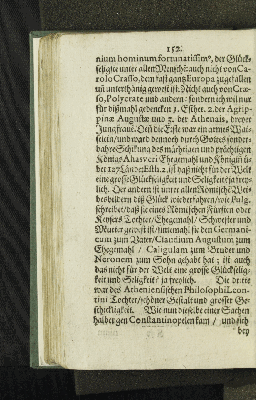 152.
nium hominum fortunatissimꝰ, der Glück-
seligste unter allen Menschē: auch nicht von Ca-
rolo Crasso, dem fast gantz Europa zugefallen
uñ unterthänig gewest ist. Nicht auch von Cræ-
so, Polycrate und andern: sondern ich wil nur
für dißmahl gedencken 1. Esther. 2. der Agrip-
pinæ Augustæ und 3. der Athenais, dreyer
Jungfrauē. Deñ die Erste war ein armes Wai-
selein/und ward dennoch durch Gottes sonder-
bahre Schikung des mächtigen und prächtigen
Königs Ahasveri Ehegemahl und Königiñ ü-
ber 127 Länder Esth. 2. ist daß nicht für der Welt
eine grosse Glückseligkeit und Seligkeit? ja trey-
lich. Der andern ist unter allen Römischē Wei-
besbildern diß Glück wiederfahren/ wie Pulg.
schreibet/ daß sie eines Römischen Fürsten oder
Keysers Tochter/ Ehegemahl/ Schwester und
Mutter gewest ist/ sintemahl sie den Germani-
cum zum Vater/ Claudium Augustum zum
Ehegemahl/ Caligulam zum Bruder und
Neronem zum Sohn gehabt hat; ist auch
das nicht für der Welt eine grosse Glückselig-
keit und Seligkeit/ ja freylich. Die dritte
war des Atheniensischen Philosophi Leon-
tini Tochter/ schöner Gestalt und grosser Ge-
schickligkeit. Wie nun dieselbe einer Sachen
halber gen Constantinopelen kam/ und sich
bey